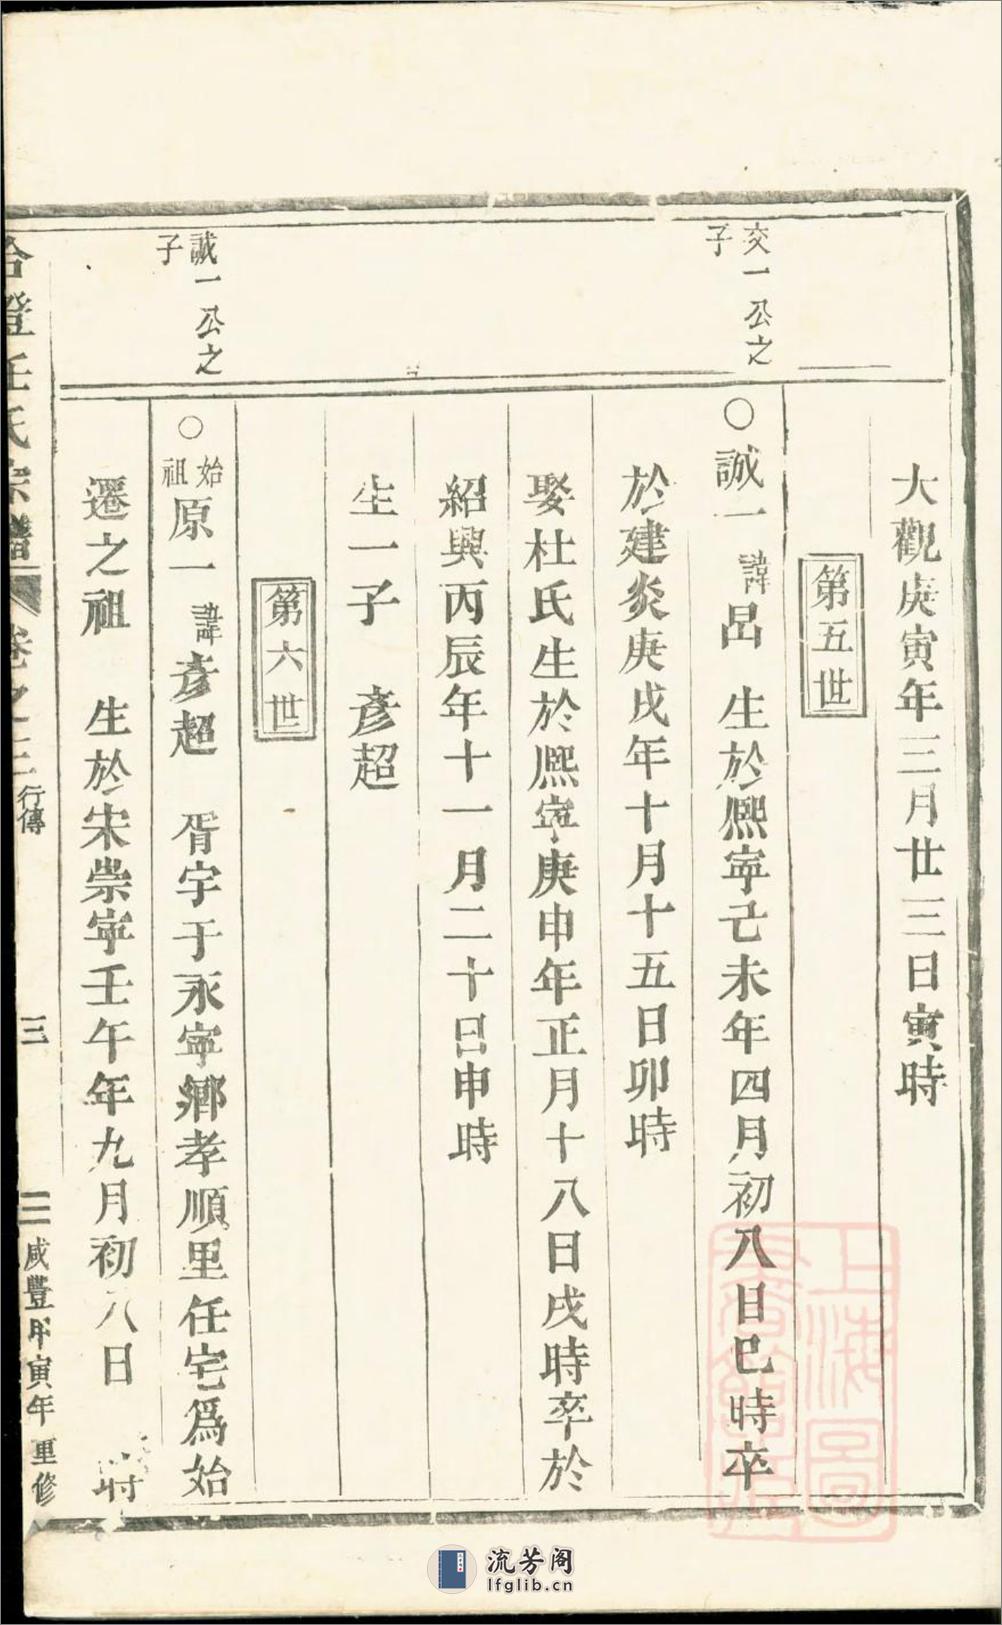 大觀庚寅年三月廿三日寅時
第五世
交一公之
子
○誠一諱昌 生於熈寧己未年四月初八日巳時卒
於建炎庚戌年十月十五日卯時
娶杜氏生於熈寧庚申年正月十八日戌時卒於
紹興丙辰年十一月二十日申時
生一子 彥超
第六世
誠一公之
子
○始祖原一諱彥超 胥宇于永寧鄉孝順里任宅爲始
遷之祖 生於宋崇寧壬午年九月初八日 時
澄任氏宗譜 卷之三 行傳 三 咸豐甲寅年重修
上海圖書館藏
流芳阁
lfglib.cn